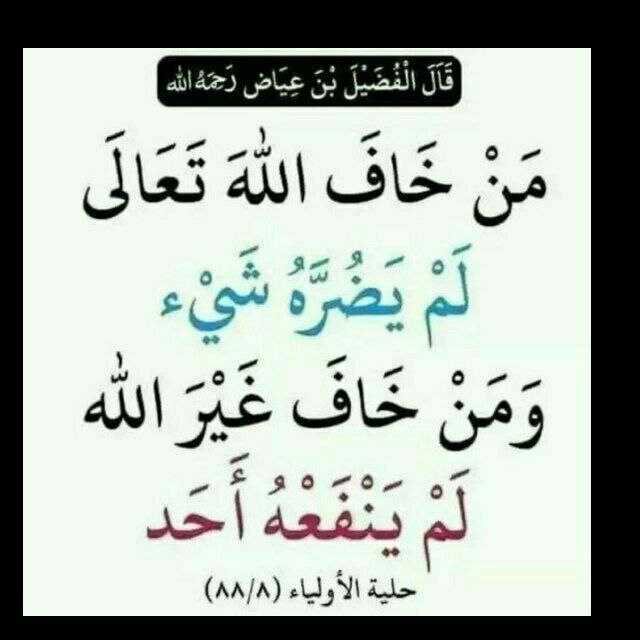 قَالَ الْفُضَيْلَ بْنَ عِيَاض رَحِمَهُ الله
مَنْ خَافَ اللهَ تَعَالَى
لَمْ يَضُرَّهُ شَيْء
وَمَنْ خَافَ غَيْرَ الله
لَمْ يَنْفَعْهُ أَحَد
حلية الأولياء (٨٨/٨)